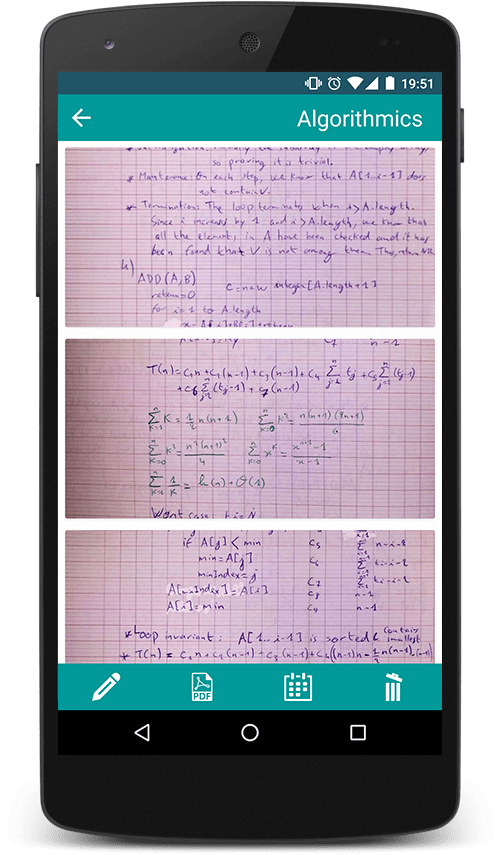 19:51
Algorithmics
so proving it is trivial.
* Maintenance: On each step, we know that A[1..i-1] does
not contain V.
* Termination: The loop terminates when i > A.length.
Since i increase by 1 and i > A.length, we know that
all the elements in A have been checked and it has
been found that V is not among them. Thus, return NIL
4)
ADD (A,B)
C = new integer [A.length+1]
retenu=0
for i=1 to A.length
n-1
T(n) = C₁n + C₂(n-1) + C₃(n-1) + C₄ ∑ⁿⱼ₌₂ tj + C₅ ∑ⁿⱼ₌₂ (tj-1)
+ C₆ ∑ⁿⱼ₌₂ (tj-1) + C₇(n-1)
∑ⁿₖ₌₁ K = 1/2 n(n+1) ∑ⁿₖ₌₀ K² = n(n+1)(2n+1)/6
∑ⁿₖ₌₀ K³ = n²(n+1)²/4 ∑ⁿₖ₌₀ xᴷ = xⁿ⁺¹-1/x-1
∑ⁿₖ₌₁ 1/K = ln(n) + O(1)
Worst case:
if A[j] < min C₅
min = A[j] C₆
minIndex = j C₇
A[minIndex] = A[i] C₈ n-1
A[i] = min C₉ n-1
* Loop invariant: A[1..i-1] is sorted & contains smallest
* T(n) = C₁n + C₂(n-1) + C₃(n-1) + C₄
PDF